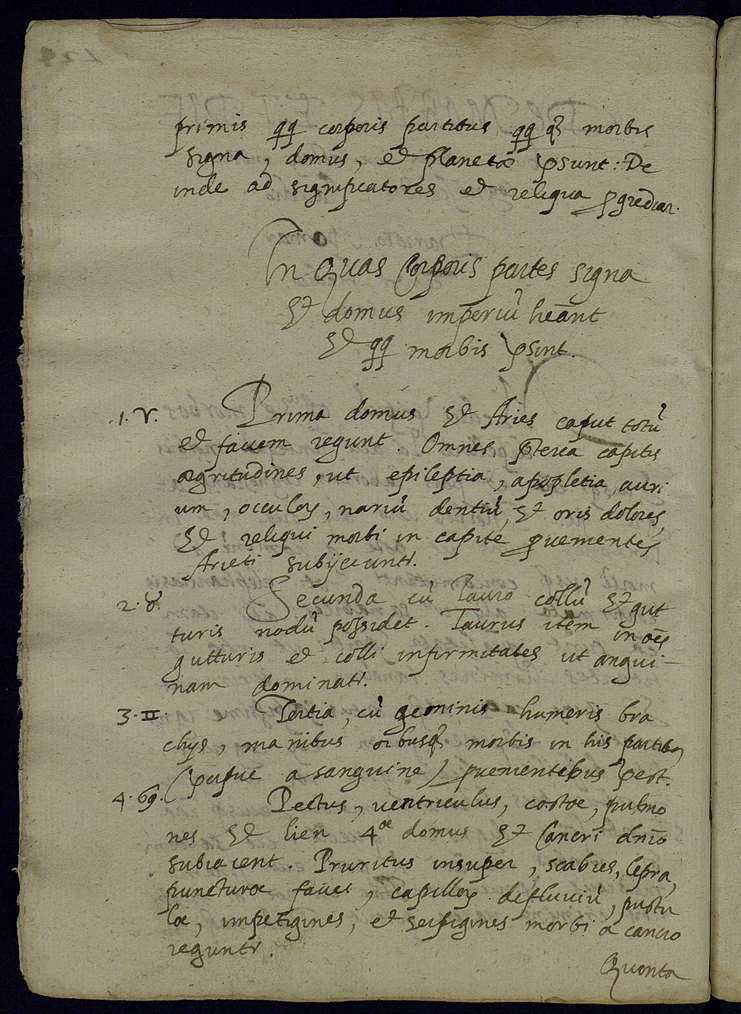 primis qq corporis partibus qq qs morbis
signa, domus, et planetæ psunt: De
inde ad significatores et reliqua pgrediar.
In quas Corporis partes signa
Et domus imperiū heānt
Et qq morbis psint.
.1. ♈. Prima domus Et Aries caput totū
et faciem regunt. Omnes pterea capitis
ægritudines, ut epileptia, apopletia, auri
um, occulor, nariū dentiū, Et oris dolores,
Et reliqui morbi in capite pvenientes
Arieti subijciuntr.
2. ♉. Secunda cū Tauro collū Et gut
turis nodū possidet. Taurus item in oēs
gutturis et colli infirmitates ut angui-
nam dominatr.
3. ♊. Tertia, cū geminis humeris bra
chijs, manibus oibusq morbis in his partibus
a sanguine) pvenientibus pest.
4. ♋. Pectus, ventriculus, costæ, pulmo
nes Et lien 4æ domus Et Cancri dnio
subiacent. Pruritus insuper, scabies, lepra,
puncturæ faciei, capillor defluviū, pustu
læ, impetigines, et serpigines morbi a cancro
reguntr.
Quonta